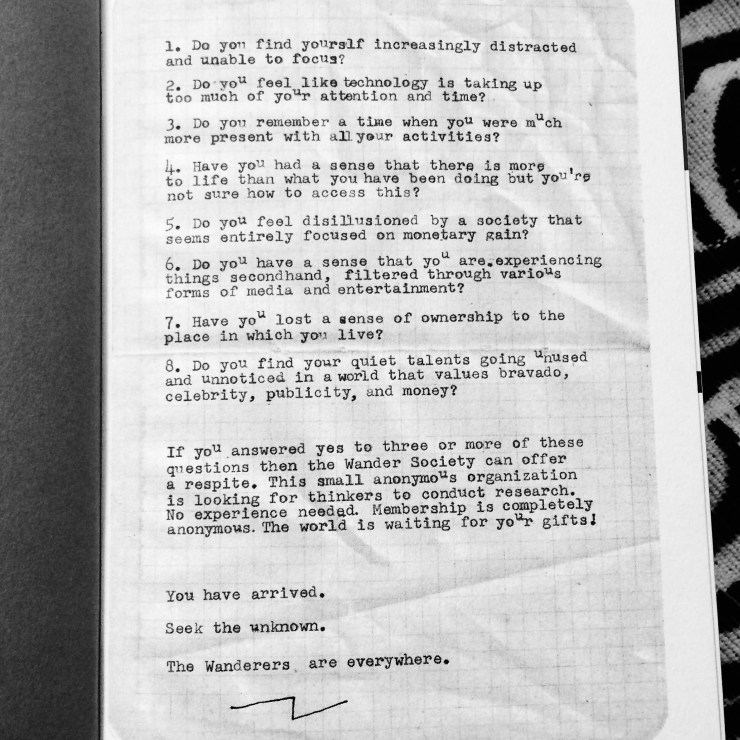 1. Do you find yourself increasingly distracted
and unable to focus?
2. Do you feel like technology is taking up
too much of your attention and time?
3. Do you remember a time when you were much
more present with all your activities?
4. Have you had a sense that there is more
to life than what you have been doing but you're
not sure how to access this?
5. Do you feel disillusioned by a society that
seems entirely focused on monetary gain?
6. Do you have a sense that you are experiencing
things secondhand, filtered through various
forms of media and entertainment?
7. Have you lost a sense of ownership to the
place in which you live?
8. Do you find your quiet talents going unused
and unnoticed in a world that values bravado,
celebrity, publicity, and money?
If you answered yes to three or more of these
questions then the Wander Society can offer
a respite. This small anonymous organization
is looking for thinkers to conduct research.
No experience needed. Membership is completely
anonymous. The world is waiting for your gifts!
You have arrived.
Seek the unknown.
The Wanderers are everywhere.